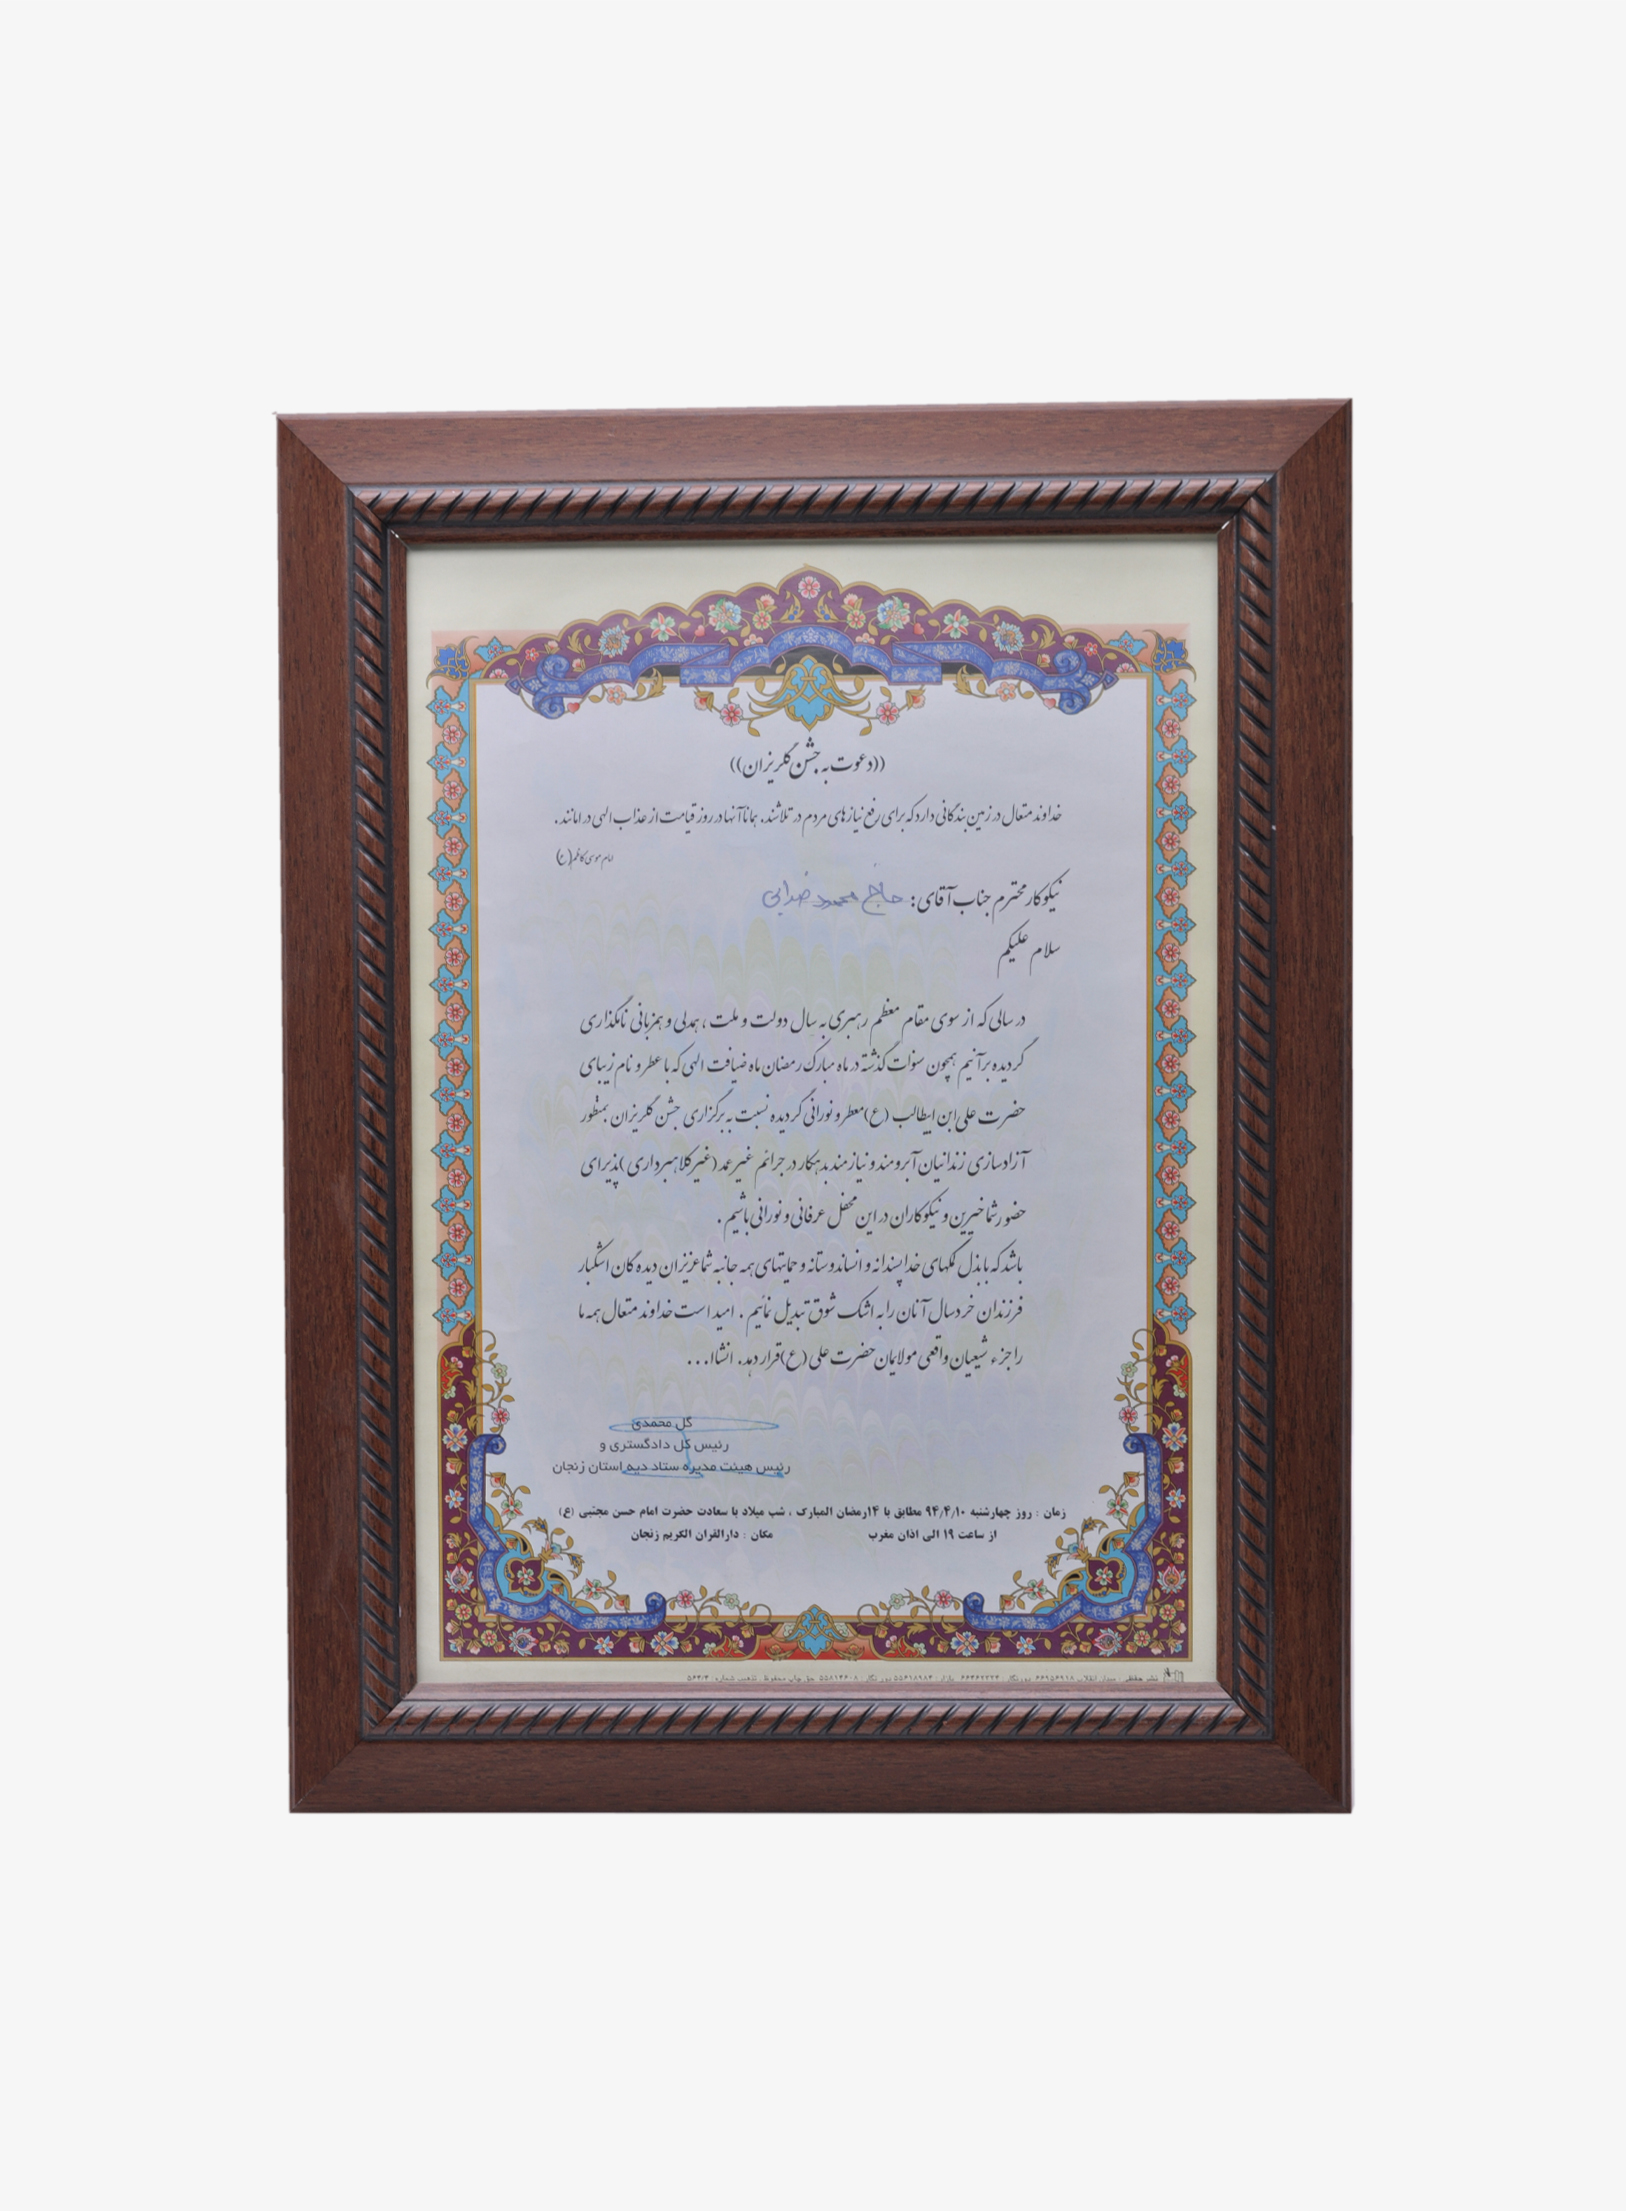 ((دعوت به جشن گلریزان))
خداوند متعال در زمین بندگانی دارد که برای رفع نیازهای مردم در تلاشند. همانا آنها در روز قیامت از عذاب الهی در امانند.
امام موسی کاظم(ع)
نیکوکار محترم جناب آقای: حاج محمود
سلام علیکم
در سالی که از سوی مقام معظم رهبری به سال دولت و ملت، همدلی و همزبانی نامگذاری
گردیده برآنیم همچون سنوات گذشته در ماه مبارک رمضان ماه ضیافت الهی که با عطر و نام زیبای
حضرت علی ابن ابیطالب (ع) معطر و نورانی گردیده نسبت به برگزاری جشن گلریزان بمنظور
آزادسازی زندانیان آبرومند و نیازمند بدهکار در جرائم غیرعمد (غیرکلاهبرداری) پذیرای
حضور شما خیرین و نیکوکاران در این محفل عرفانی و نورانی باشیم.
باشد که با بذل کمکهای خداپسندانه و انساندوستانه و حمایتهای همه جانبه شما عزیزان دیده گان اشکبار
فرزندان خردسال آنان را به اشک شوق تبدیل نمائیم. امید است خداوند متعال همه ما
را جزء شیعیان واقعی مولایمان حضرت علی (ع) قرار دهد. انشاا...
گل محمدی
رئیس کل دادگستری و
رئیس هیئت مدیره ستاد دیه استان زنجان
زمان : روز چهارشنبه ۹۴/۴/۱۰ مطابق با ۱۴رمضان المبارک ، شب میلاد با سعادت حضرت امام حسن مجتبی (ع)
از ساعت ۱۹ الی اذان مغرب مکان : دارالقران الکریم زنجان